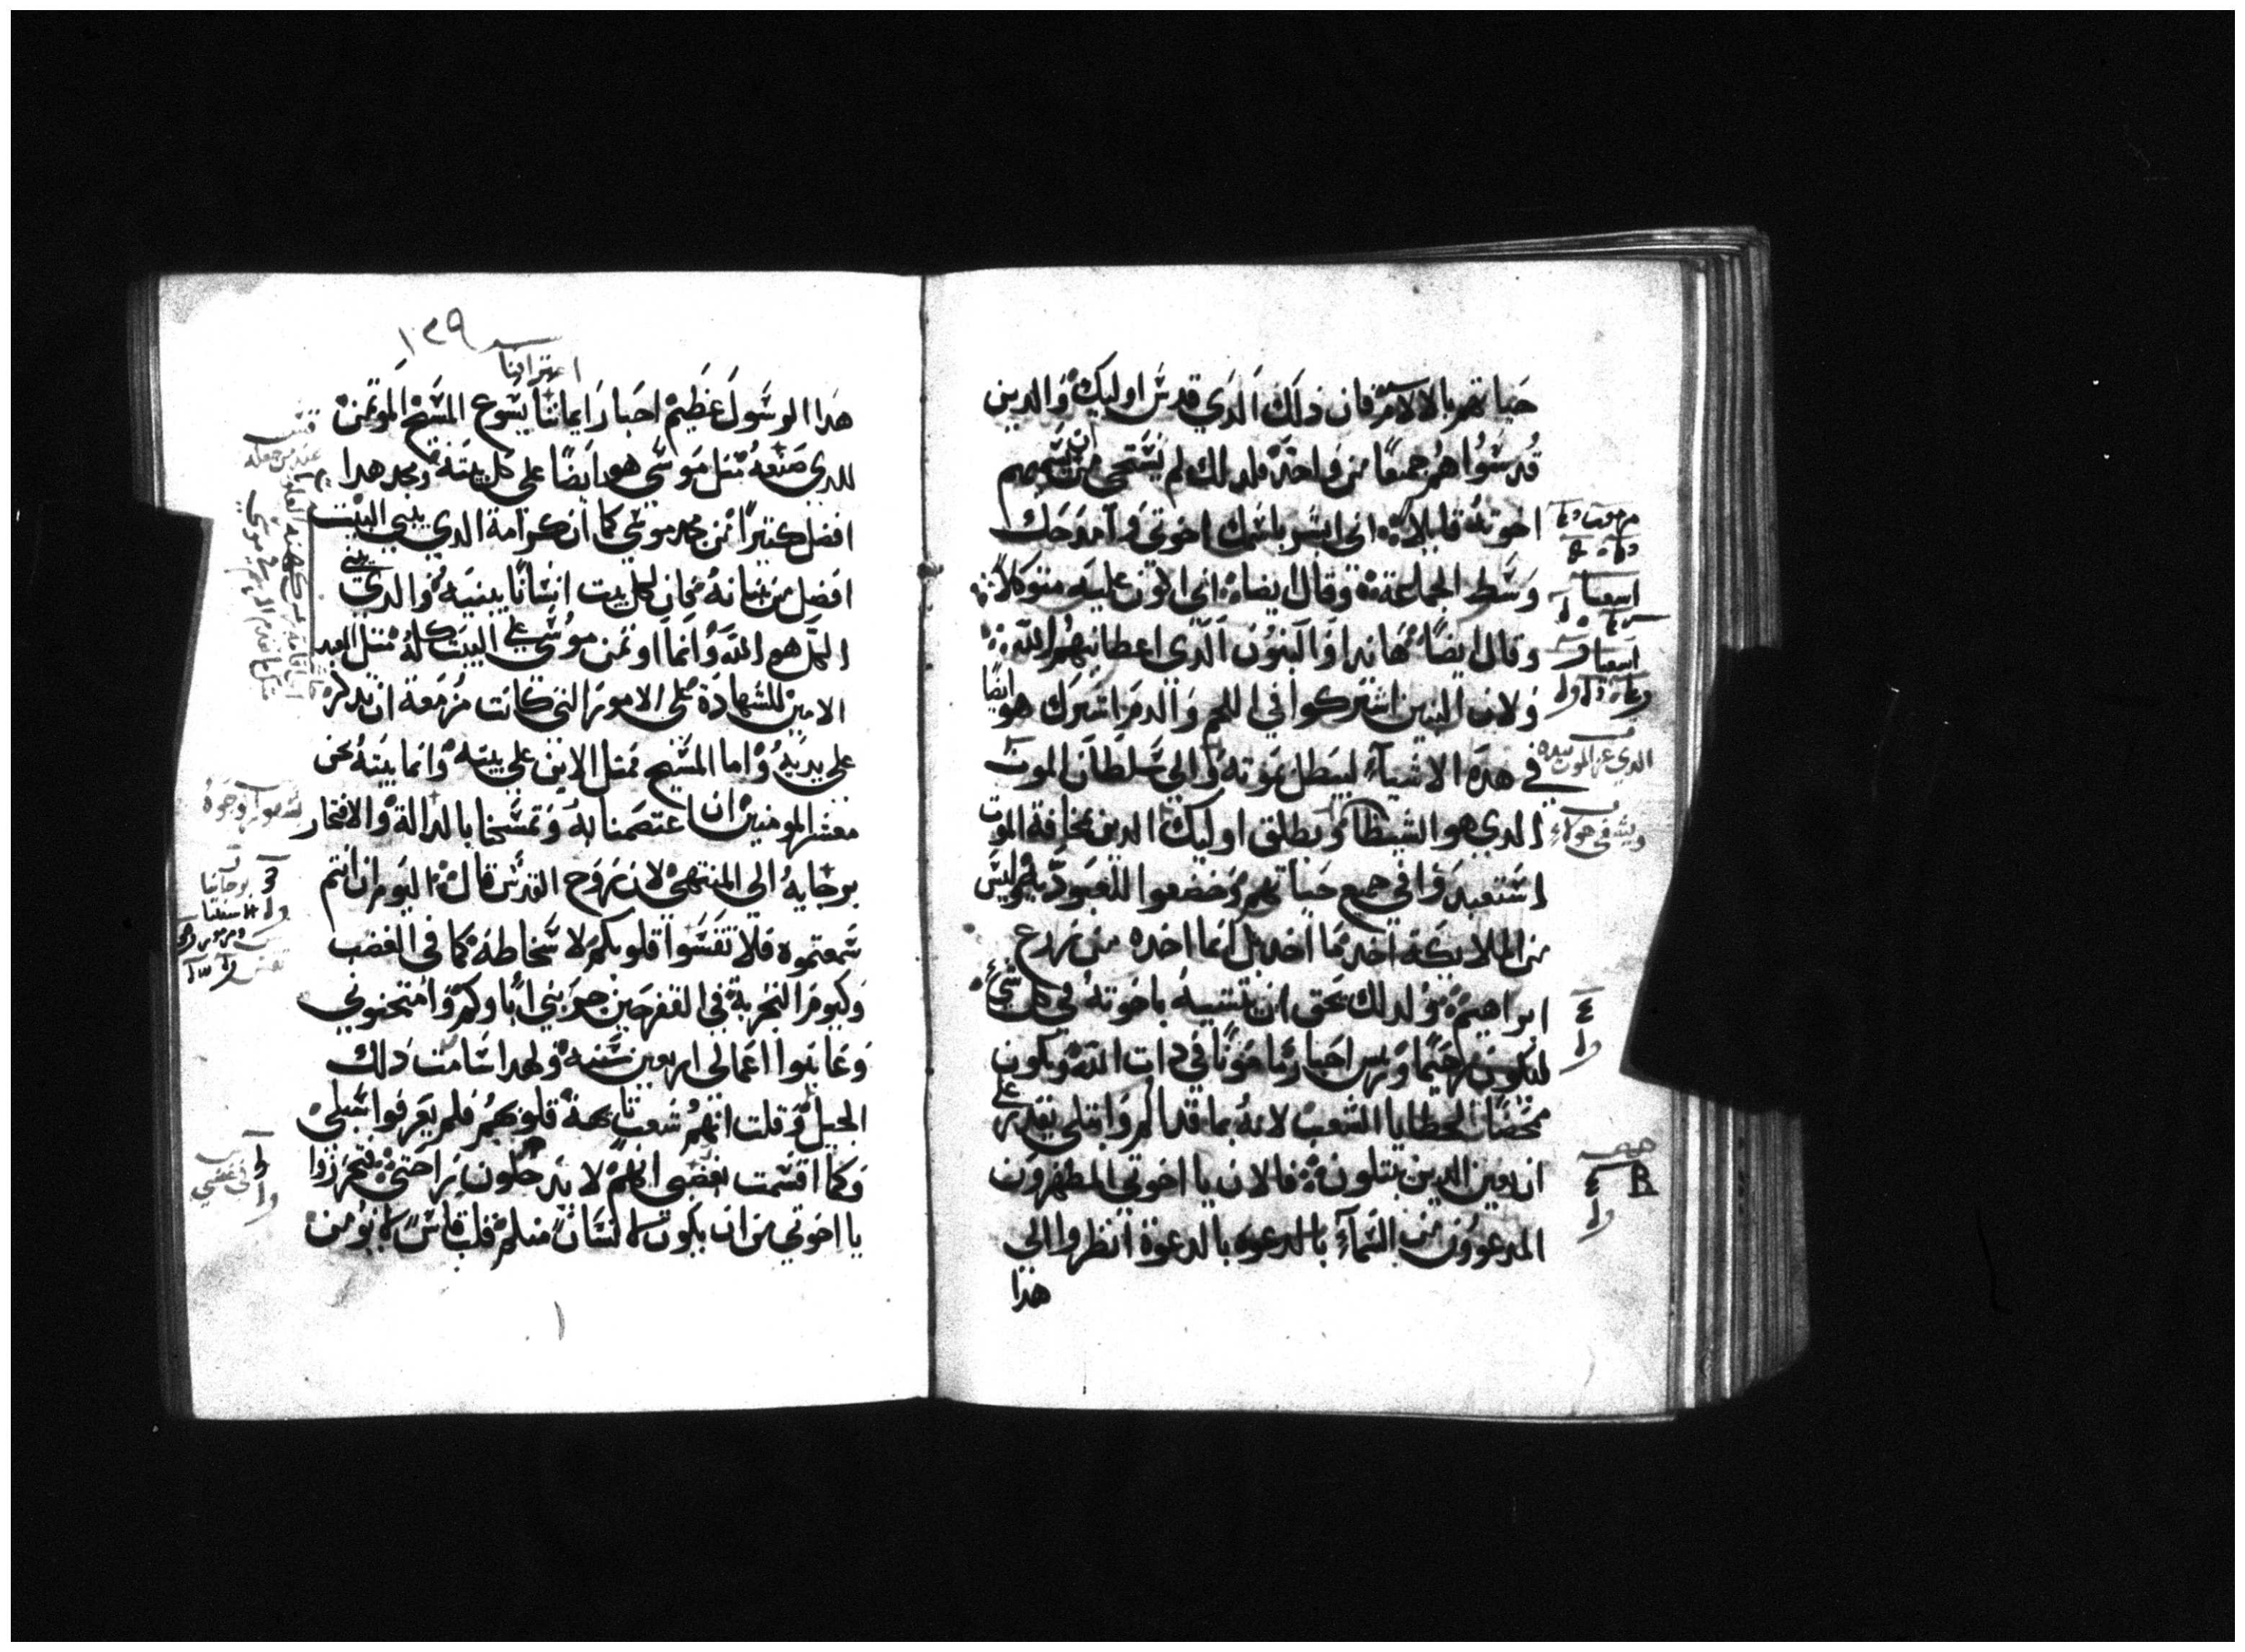 حياتهم بالالام فان ذلك الدي قدس اوليك والدين
قدسوا هم جميعًا من واحد فلدلك لم يستحي ان يسميهم
اخوته قايلا اني ابشر باسمك اخوتي وامدحك
وسط الجماعة وقال ايضا اني اكون عليه متوكلاً
وقال ايضاً هانذا والبنون الدي اعطانيهم الله
ولان البنين اشتركوا في اللحم والدم اشترك هو ايضا
في هده الاشياء ليبطل بموته والي سلطان الموت
الدي هو الشيطان ويطلق اوليك الدين بمخافة الموت
استعبدوا في جميع حياتهم وخضعوا للعبودية وليس
من الملايكة اخد ما اخد بل انما اخده من زرع
ابراهيم ولدلك يحق ان يتشبه باخوته في كل شي
ليكون رحيمًا وريس احبار مامونًا في دات الله ويكون
ممحصًا لخطايا الشعب لانه بما قد الم وابتلي يقدر علي
ان يعين الدين يبتلون فالان يا اخوتي المطهرون
المدعوون من السماء بالدعوه بالدعوة انظروا الي
هدا
١٢٩
اعترافنا
هدا الرسول عظيم احبار ايماننا يسوع المسيح الموتمن
للدي صنعه مثل موسي هو ايضًا علي كل بيته ومجد هدا
افضل كتيرًا من مجد موسي كما ان كرامة الدي يبني البيت
افضل من بنيانه فان لكل بيت انسانًا يبنيه والدي بني
الكل هو الله وانما اوتمن موسي علي البيت كله متل العبد
الامين للشهادة علي الامور التي كانت مزمعة ان تدكر
علي يديه واما المسيح فمتل الابن علي بيته وانما بيته نحن
معشر المومنين ان اعتصمنا به وتمسكنا بالدالة والافتخار
برجايه الي المنتهي لان روح القدس قال اليوم ان انتم
سمعتموه فلا تقسوا قلوبكم لاسخاطه كما في الغضب
وكيوم التجربة في القفر حين جربني اباوكم وامتحنوني
وعاينوا اعمالي اربعين سنه ولهدا سامت دلك
الجيل وقلت انهم شعب تايهة قلوبهم فلم يعرفوا سبلي
وكما اقسمت بغضبي انهم لا يدخلون راحتي فتحرزوا
يا اخوتي من ان يكون لانسان منكم قلب قاس لا يومن